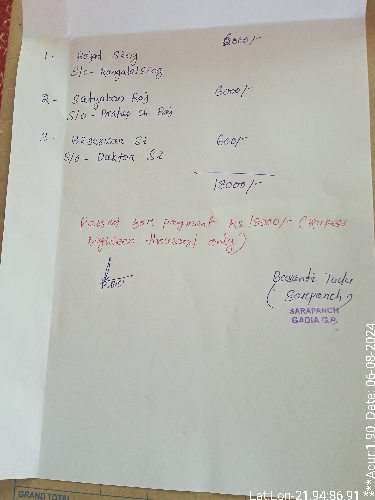 6000/-
1 - Hajat Sing
S/o - Mangalal Sing
2 - Satyaban Raj
S/o - Pratap ch. Raj
6000/-
3 - Biswanan Si
S/o - Daktar Si
600/-
18000/-
Passed for payment Rs 18000/- (Rupees
Eighteen thousand only)
Basanti Tudu
(Sarapanch)
SARAPANCH
GADIA G.P.
GRAND TOTAL
Lat:Lon-21.94:86.91 ***Acur:1.90 Date:06-08-2024